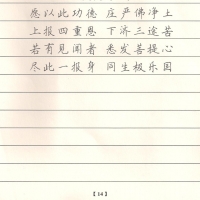 愿以此功德 庄严佛净土
上报四重恩 下济三途苦
若有见闻者 悉发菩提心
尽此一报身 同生极乐国
【14】